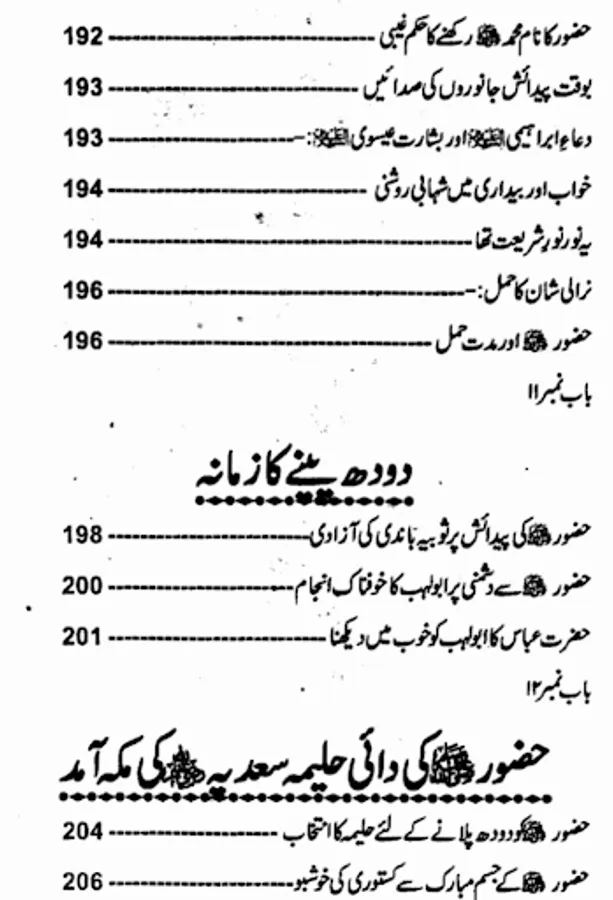 حضور کا نام محمد ﷺ رکھنے کا حکم غیبی ------------------------------ 192
بوقت پیدائش جانوروں کی صدائیں ------------------------------ 193
دعاءِ ابراہیمی علیہ السلام اور بشارت عیسوی علیہ السلام :- ------------------------------ 193
خواب اور بیداری میں شہابی روشنی ------------------------------ 194
یہ نور نورِ شریعت تھا ------------------------------ 194
نرالی شان کا حمل :- ------------------------------ 196
حضور ﷺ اور مدت حمل ------------------------------ 196
باب نمبر ۱۱
دودھ پینے کا زمانہ
حضور ﷺ کی پیدائش پر ثوبیہ باندی کی آزادی ------------------------------ 198
حضور ﷺ سے دشمنی پر ابولہب کا خوفناک انجام ------------------------------ 200
حضرت عباس کا ابولہب کو خوب میں دیکھنا ------------------------------ 201
باب نمبر ۱۲
حضور ﷺ کی دائی حلیمہ سعدیہ رضی اللہ عنہا کی مکہ آمد
حضور ﷺ کو دودھ پلانے کے لئے حلیمہ کا انتخاب ------------------------------ 204
حضور ﷺ کے جسم مبارک سے کستوری کی خوشبو ------------------------------ 206